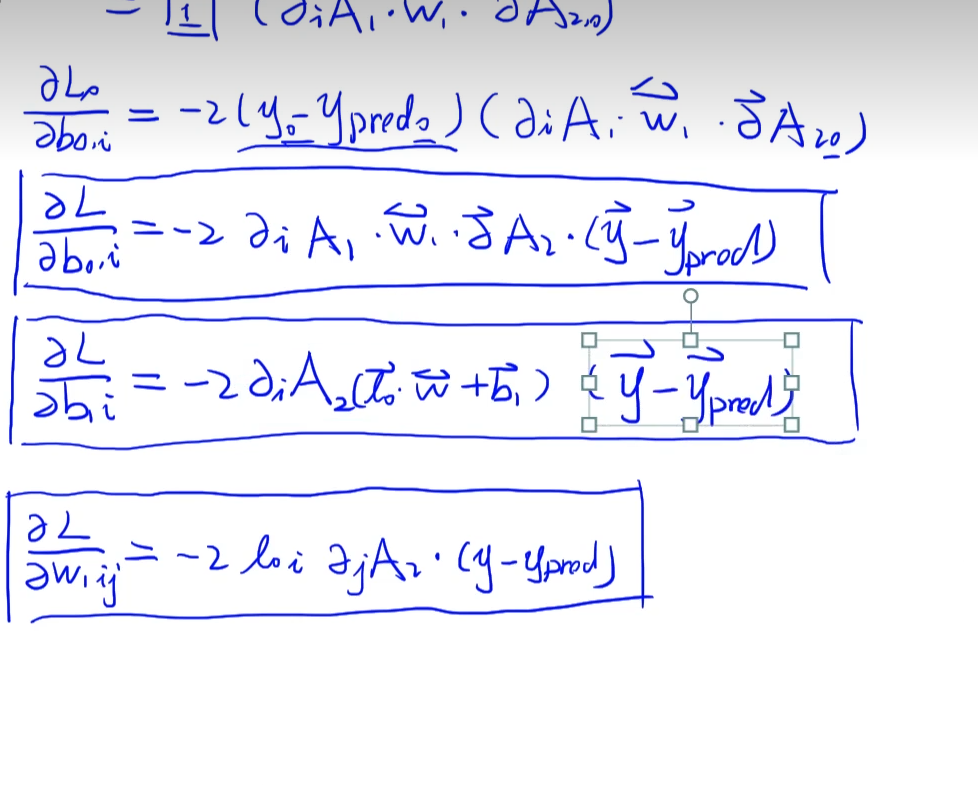 = |1| (∂iA₁·W₁·∂A₂,₀)
∂L₀/∂b₀,i = -2(y₀-ypred₀)(∂iA₁·w⃡₁·∂⃗A₂₀)
∂L/∂b₀,i = -2 ∂iA₁·w⃡₁·∂⃗A₂·(y⃗-y⃗pred)
∂L/∂b₁i = -2∂iA₂(l⃗₀·w⃡+b⃗₁)(y⃗-y⃗pred)
∂L/∂w₁ij = -2 l₀i ∂jA₂·(y-ypred)